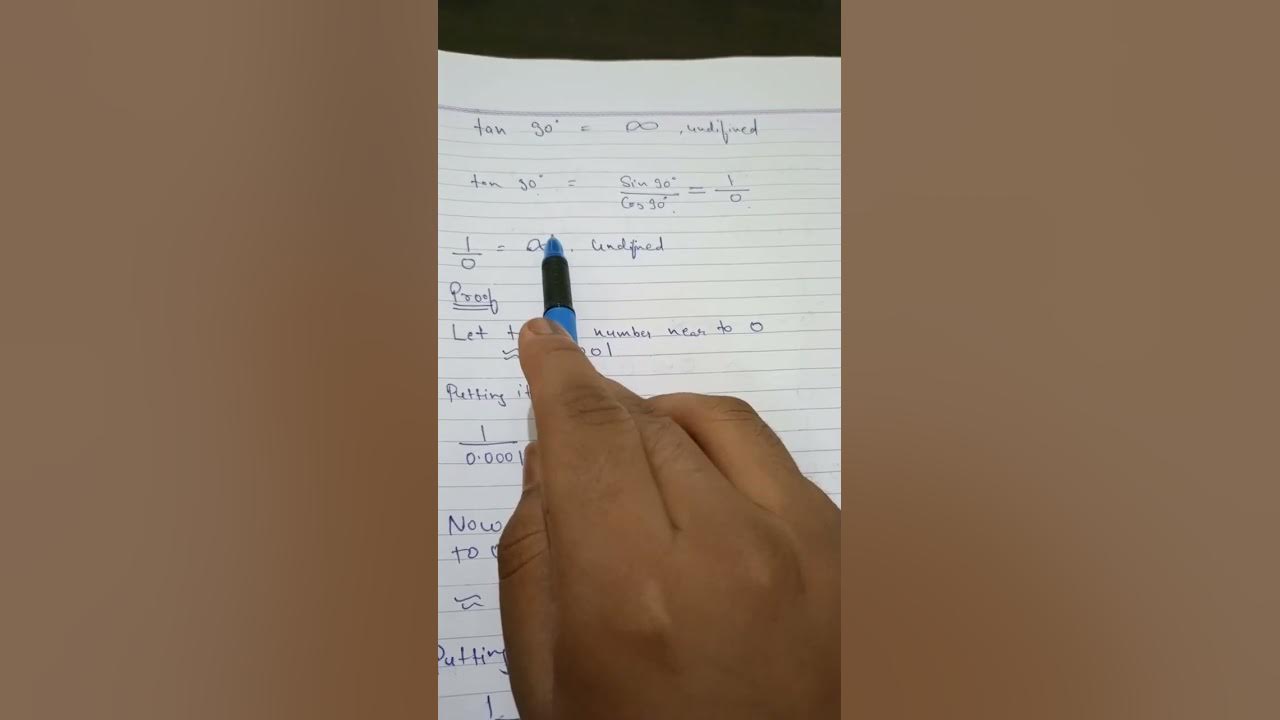 tan 90° = ∞, undifined
tan 90° = Sin 90° / Cos 90° = 1 / 0
1 / 0 = . Undifined
Proof
Let number near to 0
≈ 001
Putting it
1 / 0.0001
Now
to
≈
Putting
1